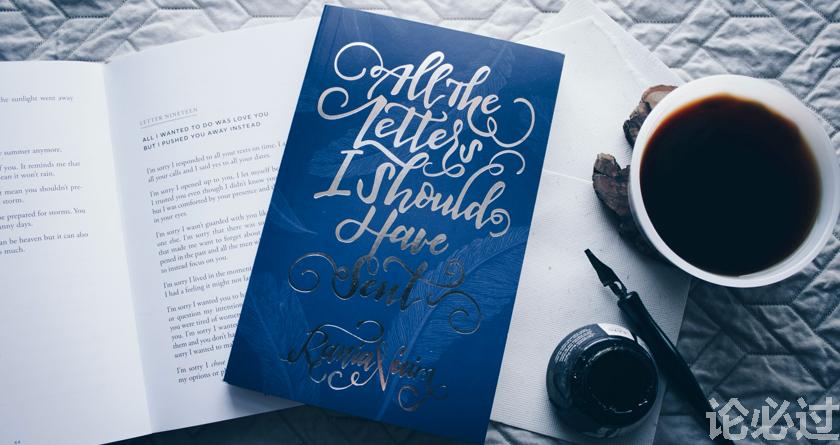 he sunlight went away
summer anymore.
f you. It reminds me that
ean it won't rain.
t mean you shouldn't pre-
storm.
be prepared for storms. You
nny days.
an be heaven but it can also
s much.
64
LETTER NINETEEN
ALL I WANTED TO DO WAS LOVE YOU
BUT I PUSHED YOU AWAY INSTEAD
I'm sorry I responded to all your texts on time. I
all your calls and I said yes to all your dates.
I'm sorry I opened up to you, I let myself be
I trusted you even though I didn't know you
but I was comforted by your presence and th
in your eyes.
I'm sorry I wasn't guarded with you like
one else. I'm sorry that there was so
that made me want to forget about
pened in the past and all the men w
to instead focus on you.
I'm sorry I lived in the moment
I had a feeling it might not las
I'm sorry I wanted you to h
or question my intention
you were tired of women
them and you don't ha
sorry I wanted to ma
I'm sorry I chose
my options or p
All The
Letters
I Should
Have
Sent
Rania Naim
论必过